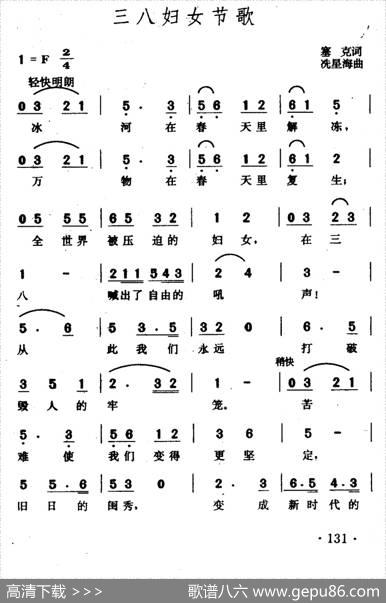 三八妇女节歌
1=F 2/4
塞克词
冼星海曲
轻快明朗
0 3 2 1 | 5 · 3 | 5 6 1 2 | 6 1 5 |
冰 河 在 春 天 里 解 冻,
0 3 2 1 | 5 · 3 | 5 6 1 2 | 6 1 5 |
万 物 在 春 天 里 复 生;
0 5 5 5 | 6 5 3 2 | 1 2 | 0 3 2 3 |
全 世 界 被 压 迫 的 妇 女, 在 三
1 - | 2 1 1 1 5 4 3 | 2 4 | 3 - |
八 喊 出 了 自 由 的 吼 声!
5 · 6 | 5 3 · 5 | 3 2 0 | 5 · 6 |
从 此 我 们 永 远 打 破
稍快
3 5 1 | 2 · 3 2 | 1 - | 0 3 2 1 |
毁 人 的 牢 笼。 苦
5 · 3 | 5 6 1 2 | 3 2 | 5 - |
难 使 我 们 变 得 更 坚 定,
5 5 · 6 | 5 3 0 | 2 · 3 | 6 · 5 4 · 3 |
旧 日 的 闺 秀, 变 成 新 时 代 的
· 131 ·
高清下载 >>>
歌谱八六 www.gepu86.com